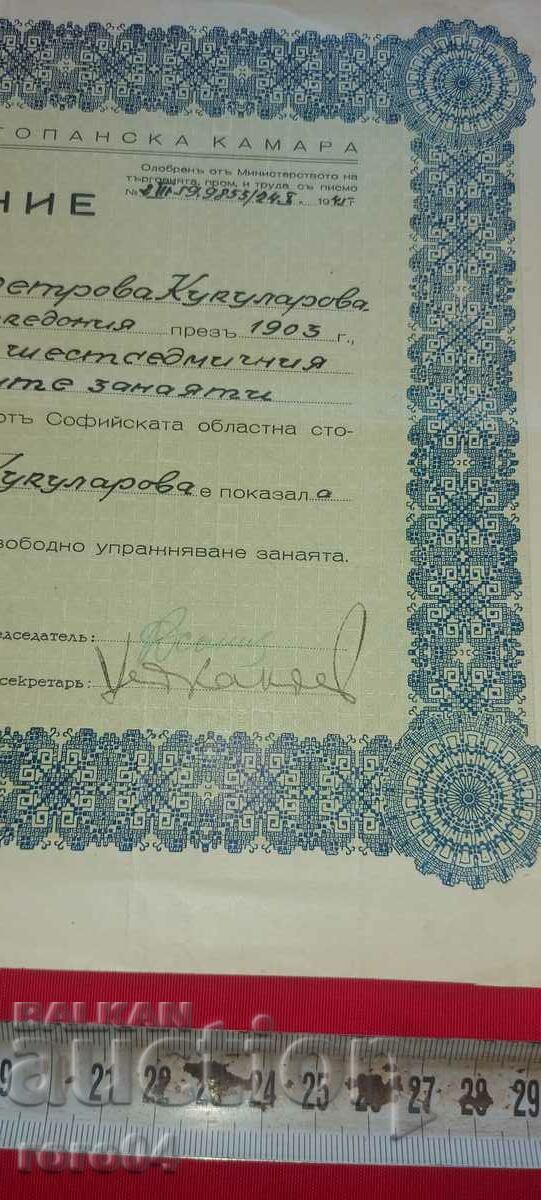 ТОПАНСКА КАМАРА
Одобренъ отъ Министерството на
търговията, пром. и труда, съ писмо
№ 194 г.
НИЕ
Петрова Кукуларова
кедония презъ 1903 г.,
шестседмичния
ите занаяти
отъ Софийската областна сто-
Кукуларова е показал а
вободно упражняване занаята.
едседатель:
секретарь:
BALKAN
auction
roro04
9 21 22 23 24 25 26 27 28 29